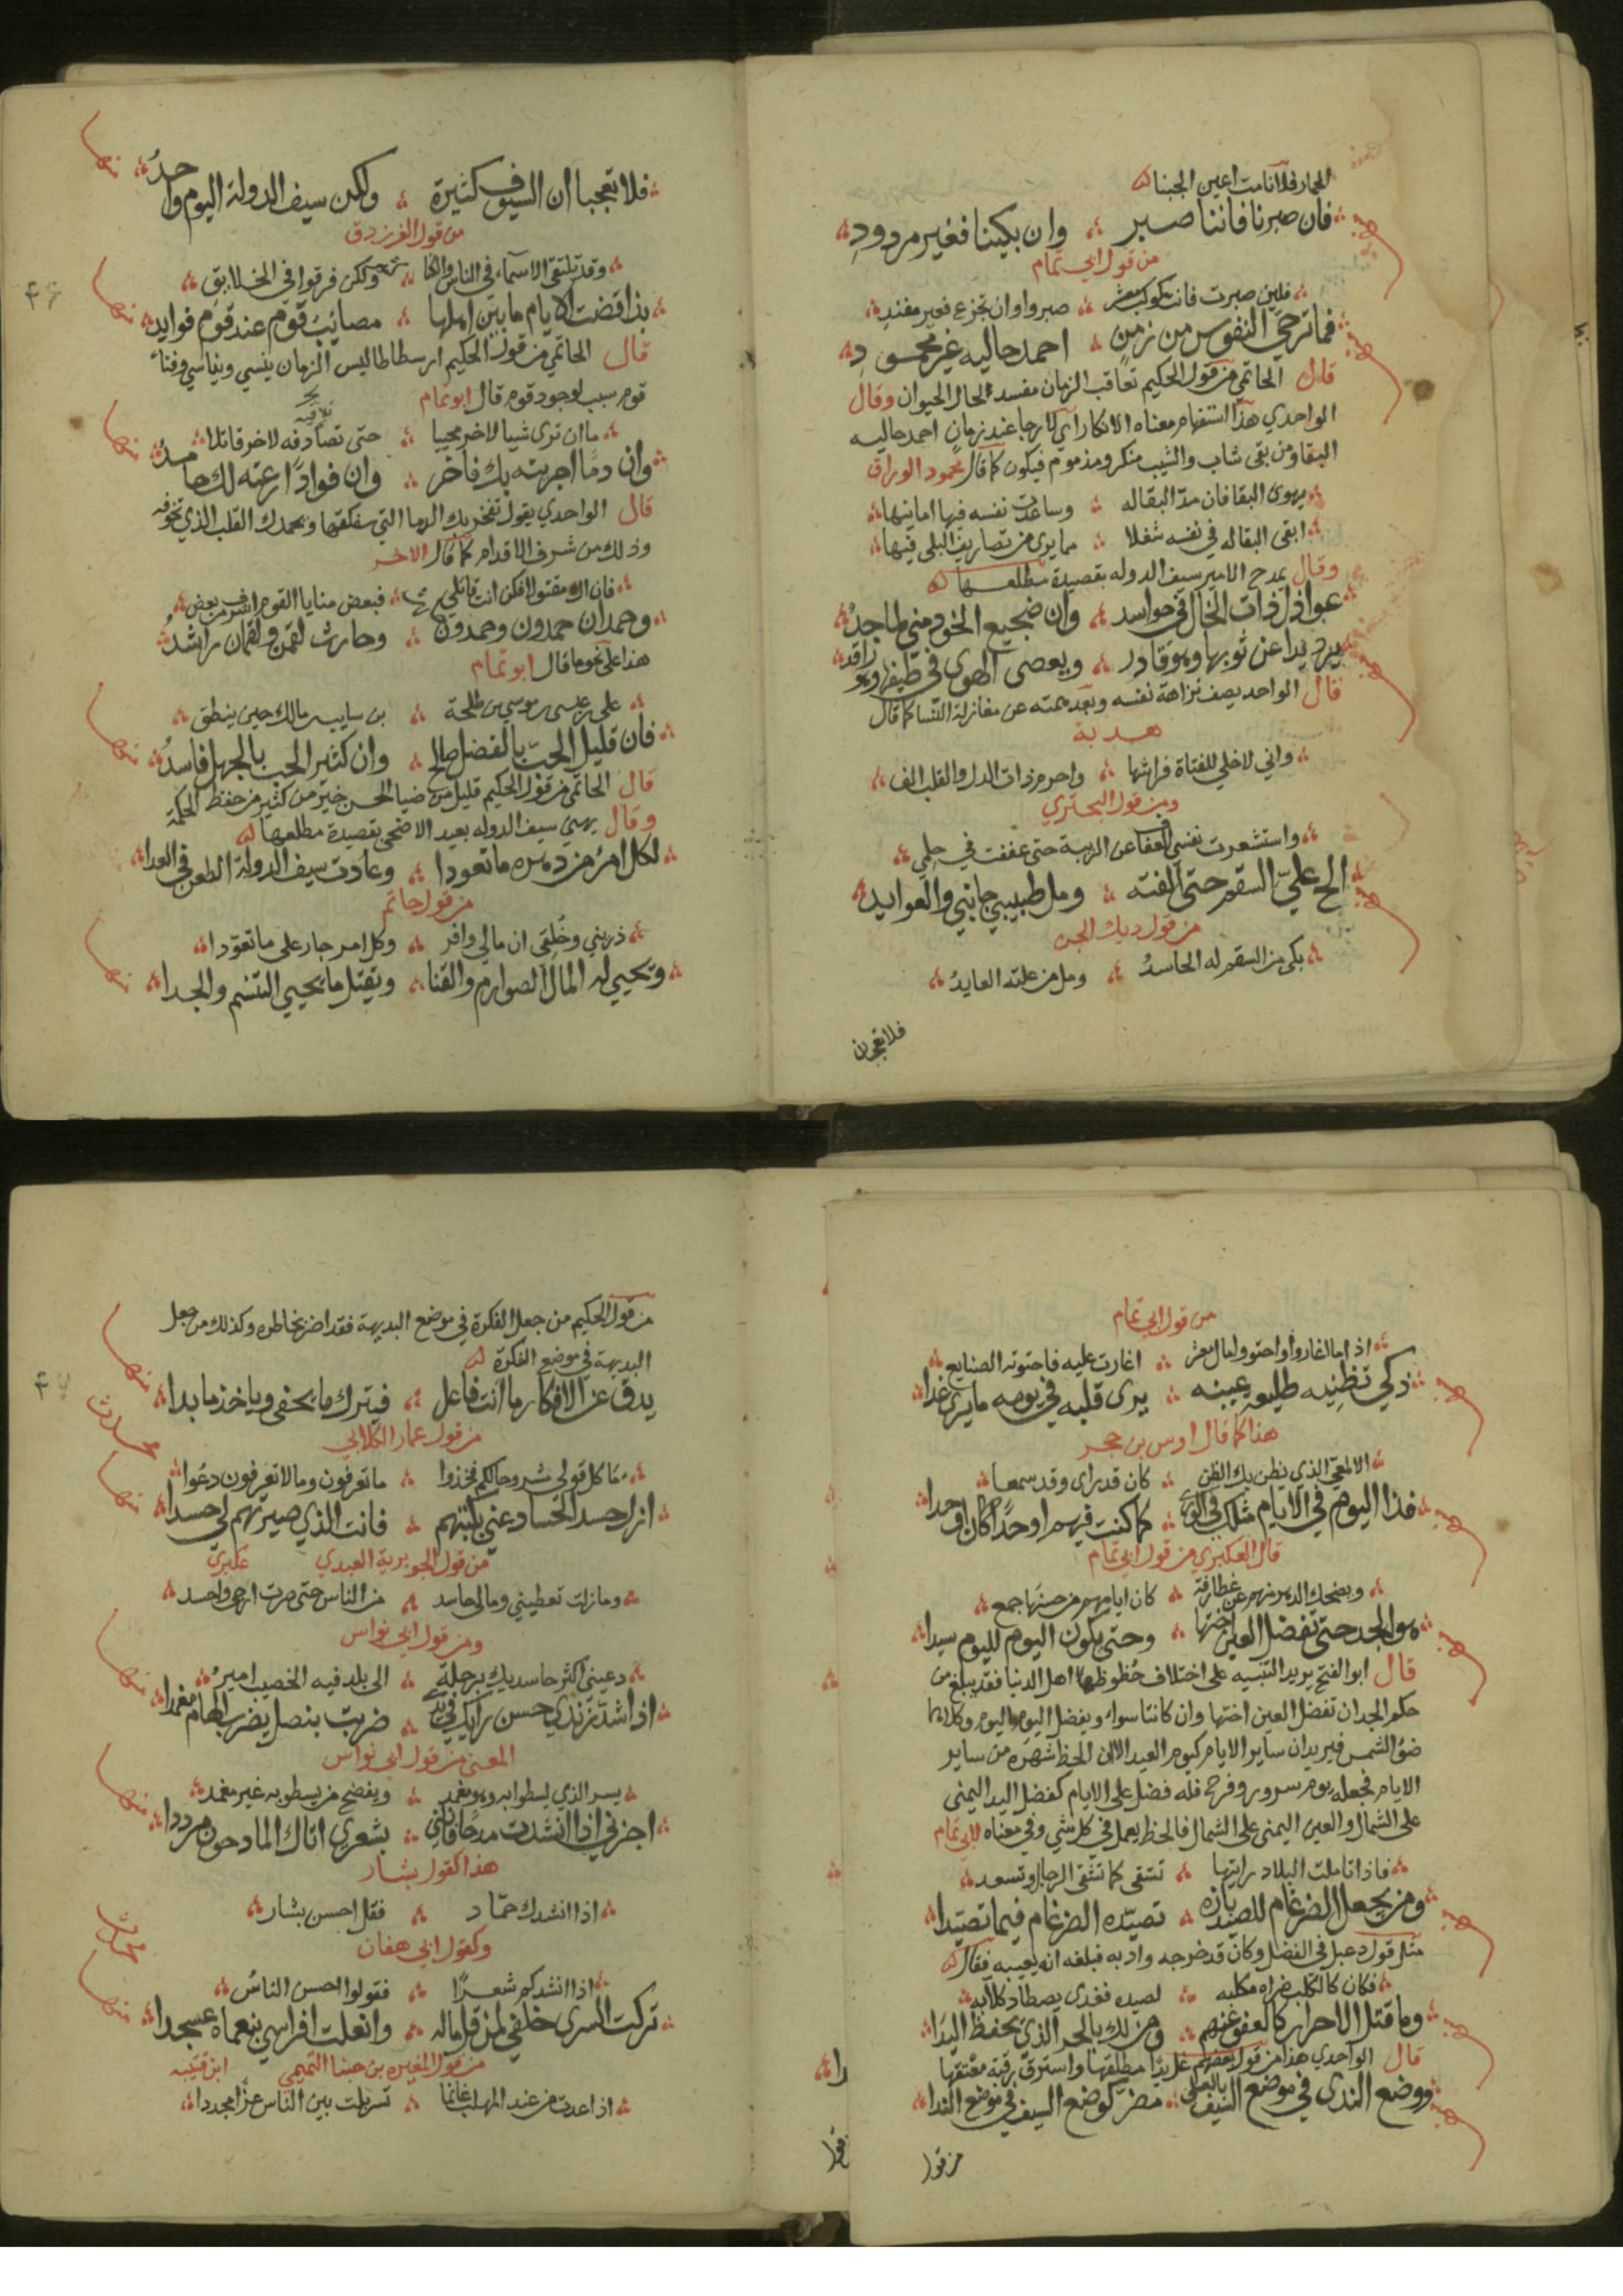 للعمار فلا نامت اعين الجبنا
فان صبرنا فاننا صبر وان بكينا فغير مردود
من قول ابي تمام
فلين صبرت فانت كوكب معشر صبروا وان تجزع فغير مفند
فما ترجي النفوس من زمن احمد حاليه غير محمود
قال الحاتمي من قول الحكيم تعاقب الزمان مفسد لحال الحيوان وقال
الواحدي هذا استفهام معناه الانكار اي لا رجا عند زمان احمد حاليه
البقا ومن بقي شاب والشيب منكر ومذموم فيكون كما قال محمود الوراق
يهوى البقا فان مد البقا له وساعدت نفسه فيها امانيها
ابقى البقا له في نفسه شغلا مما يرى من تصاريف البلى فيها
وقال يمدح الامير سيف الدوله بقصيدة مطلعها
عواذل ذات الخال في حواسد وان ضجيع الخود مني لماجد
يرد يدا عن ثوبها وهو قادر ويعصي الهوى في طيفها وهو راقد
قال الواحد يصف نزاهة نفسه وبعد همته عن مغازلة النسا كما قال
هدبة
واني لاخلي للفتاة فراشها واحرم ذات الدل والقلب الف
ومن قول البحتري
واستشعرت نفسي العفاف عن الريبة حتى عففت في حلمي
الح علي السقم حتى الفته ومل طبيبي جانبي والعوايد
من قول ديك الجن
بكى من السقم له الحاسد ومل من علته العايد
فلا تعجبن
فلا تعجبا ان السيوف كثيرة ولكن سيف الدولة اليوم واحد
من قول الفرزدق
وقد تلتقي الاسماء في الناس والكنا ولكن فرقوا في الخلايق
بذا قضت الايام ما بين اهلها مصائب قوم عند قوم فوايد
قال الحاتمي من قول الحكيم ارسطاطاليس الزمان ينسي ويناسي وفناء
قوم سبب لوجود قوم قال ابو تمام
ما ان ترى شيا لاخر محييا حتى تصادفه لاخر قاتلا
تلاقيه
وان دما اجريته بك فاخر وان فوادا رعته لك حامد
قال الواحدي يقول تفخر بك الدما التي سفكتها ويحمدك القلب الذي تخوفه
وذلك من شرف الاقدام كما قال الاخر
فان اك مقتولا فكن انت قاتلي فبعض منايا القوم اشرف من بعض
وحمدان حمدون وحمدون حارث وحارث لقمن ولقمان راشد
هذا على نحو ما قال ابو تمام
علي بن عيسى بن موسي بن طلحة بن سايب بن مالك حين ينطق
فان قليل الحب بالفضل صالح وان كثير الحب بالجهل فاسد
قال الحاتمي من قول الحكيم قليل من ضيا الحسن خير من كثير من حفظ الحكمة
وقال يهني سيف الدوله بعيد الاضحى بقصيدة مطلعها
لكل امرئ من دهره ما تعودا وعادت سيف الدولة الطعن في العدا
من قول حاتم
ذريني وخلقي ان مالي وافر وكل امر جار على ما تعودا
وتحيي له المال الصوارم والقنا ويقتل ما يحيي التبسم والجدا
٤٦
من قول ابي تمام
اذا ما اغاروا واحتووا مال معشر اغارت عليه فاحتوته الصنايع
ذكي تظنيه طليعة عينه يرى قلبه في يومه ما يرى غدا
هذا كما قال اوس بن حجر
الالمعي الذي يظن بك الظن كان قد راى وقد سمعا
فذا اليوم في الايام مثلك في الورى كما كنت فيهم اوحدا كان اوحدا
قال العكبري من قول ابي تمام
ويضحك الدهر منهم عن غطارفة كان ايامهم من حسنها جمع
هو الجد حتى تفضل العين اختها وحتى يكون اليوم لليوم سيدا
قال ابو الفتح يريد التنبيه على اختلاف حظوظ اهل الدنيا فقد يبلغ من
حكم الجد ان تفضل العين اختها وان كانتا سواء ويفضل اليوم اليوم وكلاهما
ضوء الشمس فيريد ان ساير الايام كيوم العيد الا ان الحظ شهره من ساير
الايام فجعله يوم سرور وفرح فله فضل على الايام كفضل اليد اليمنى
على الشمال والعين اليمنى على الشمال فالحظ يعمل في كل شي وفي معناه لابي تمام
فاذا تاملت البلاد رايتها تشقى كما تشقى الرجال وتسعد
ومن يجعل الضرغام للصيد بازه تصيده الضرغام فيما تصيدا
مثل قول دعبل في الفضل وكان قد خرجه وادبه فبلغه انه يعيبه فقال
فكان كالكلب ضراه مكلبه لصيده فغدى يصطاد كلابه
وما قتل الاحرار كالعفو عنهم ومن لك بالحر الذي يحفظ اليدا
قال الواحدي هذا من قول بعضهم غل يدا مطلقها واسترق رقبة معتقها
ووضع الندى في موضع السيف بالعلى مضر كوضع السيف في موضع الندا
من قول
من قول الحكيم من جعل الفكرة في موضع البديهة فقد اضر بخاطره وكذلك من جعل
البديهة في موضع الفكرة
يدق عن الافكار ما انت فاعل فيترك ما يخفى وياخذ ما بدا
من قول عمار الكلابي
ما كل قولي مشروحا لكم فخذوا ما تعرفون وما لا تعرفون دعوا
ازل حسد الحساد عني بكبتهم فانت الذي صيرتهم لي حسدا
من قول الجويرية العبدي عكبري
وما زلت تعطيني وما لي حاسد من الناس حتى صرت ارجى واحسد
ومن قول ابي نواس
دعيني اكثر حاسديك برحلة الى بلد فيه الخصيب امير
اذا شد زندي حسن رايك في يدي ضربت بنصل يضرب الهام مغمدا
المعنى من قول ابي نواس
يسر الذي يسطوا به وهو مغمد ويفضح من يسطو به غير مغمد
اجزني اذا انشدت مدحا فانني بشعري اتاك المادحون مرددا
هذا كقول بشار
اذا انشدك حماد فقل احسن بشار
وكقول ابي هفان
اذا انشدكم شعرا فقولوا احسن الناس
تركت السرى خلفي لمن قل ماله وانعلت افراسي بنعماك عسجدا
من قول المغيره بن حبنا التميمي ابن قتيبه
اذا عدت من عند المهلب غانما تسربلت بين الناس عزا مجددا
٤٧